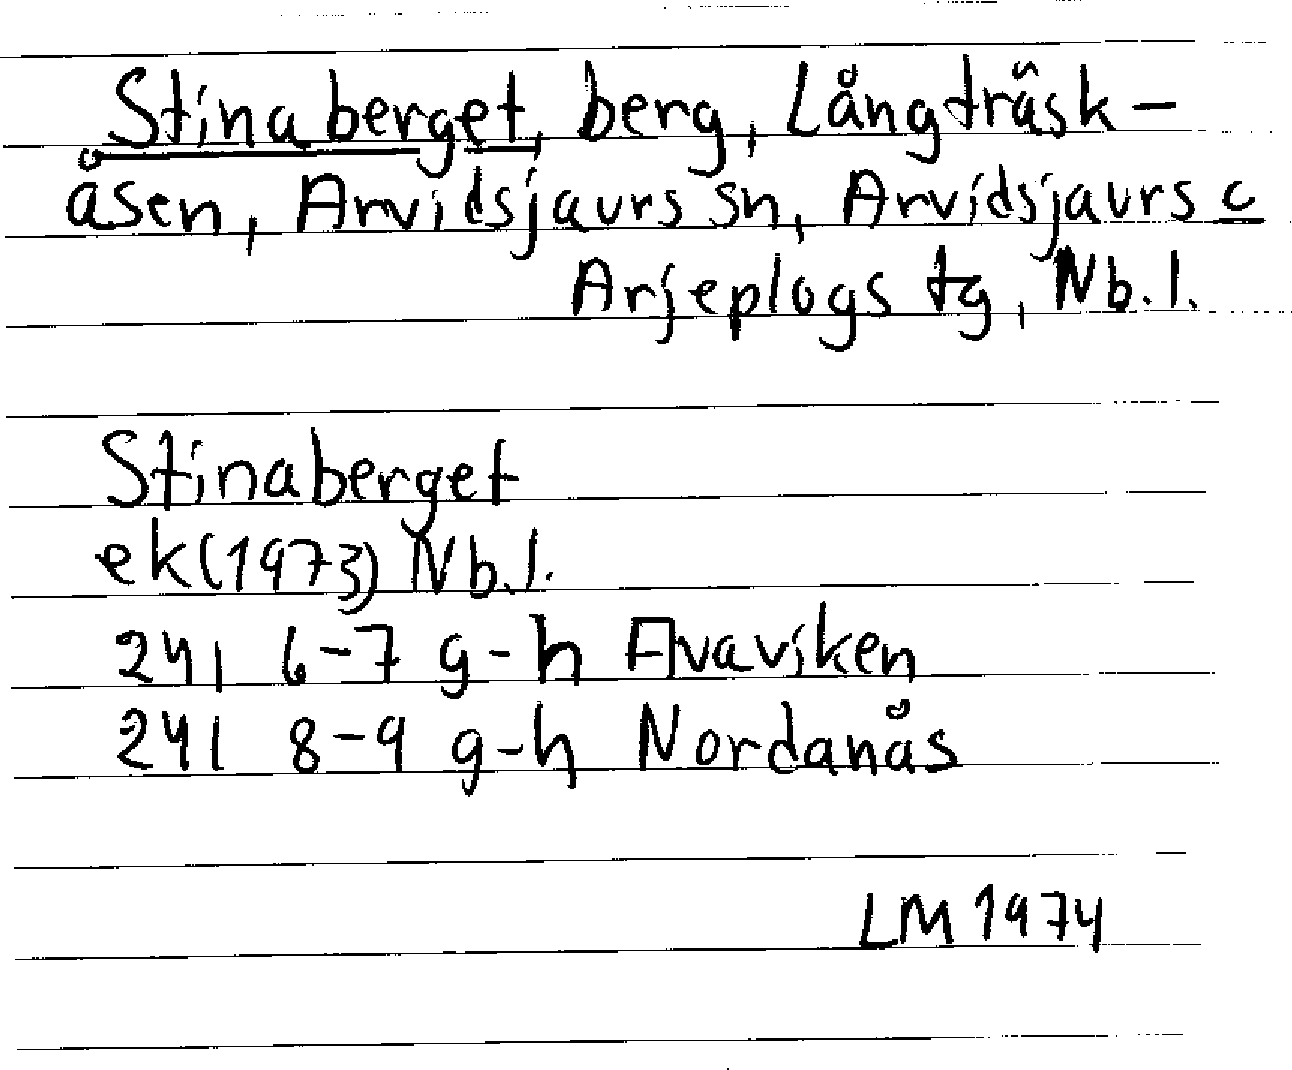 Stinaberget, berg, Långträsk-
åsen, Arvidsjaurs sn, Arvidsjaurs o
Arjeplogs tg, Nb.l.
Stinaberget
ek(1973) Nb.l.
24I 6-7 g-h Avaviken
24I 8-9 g-h Nordanås
LM 1974